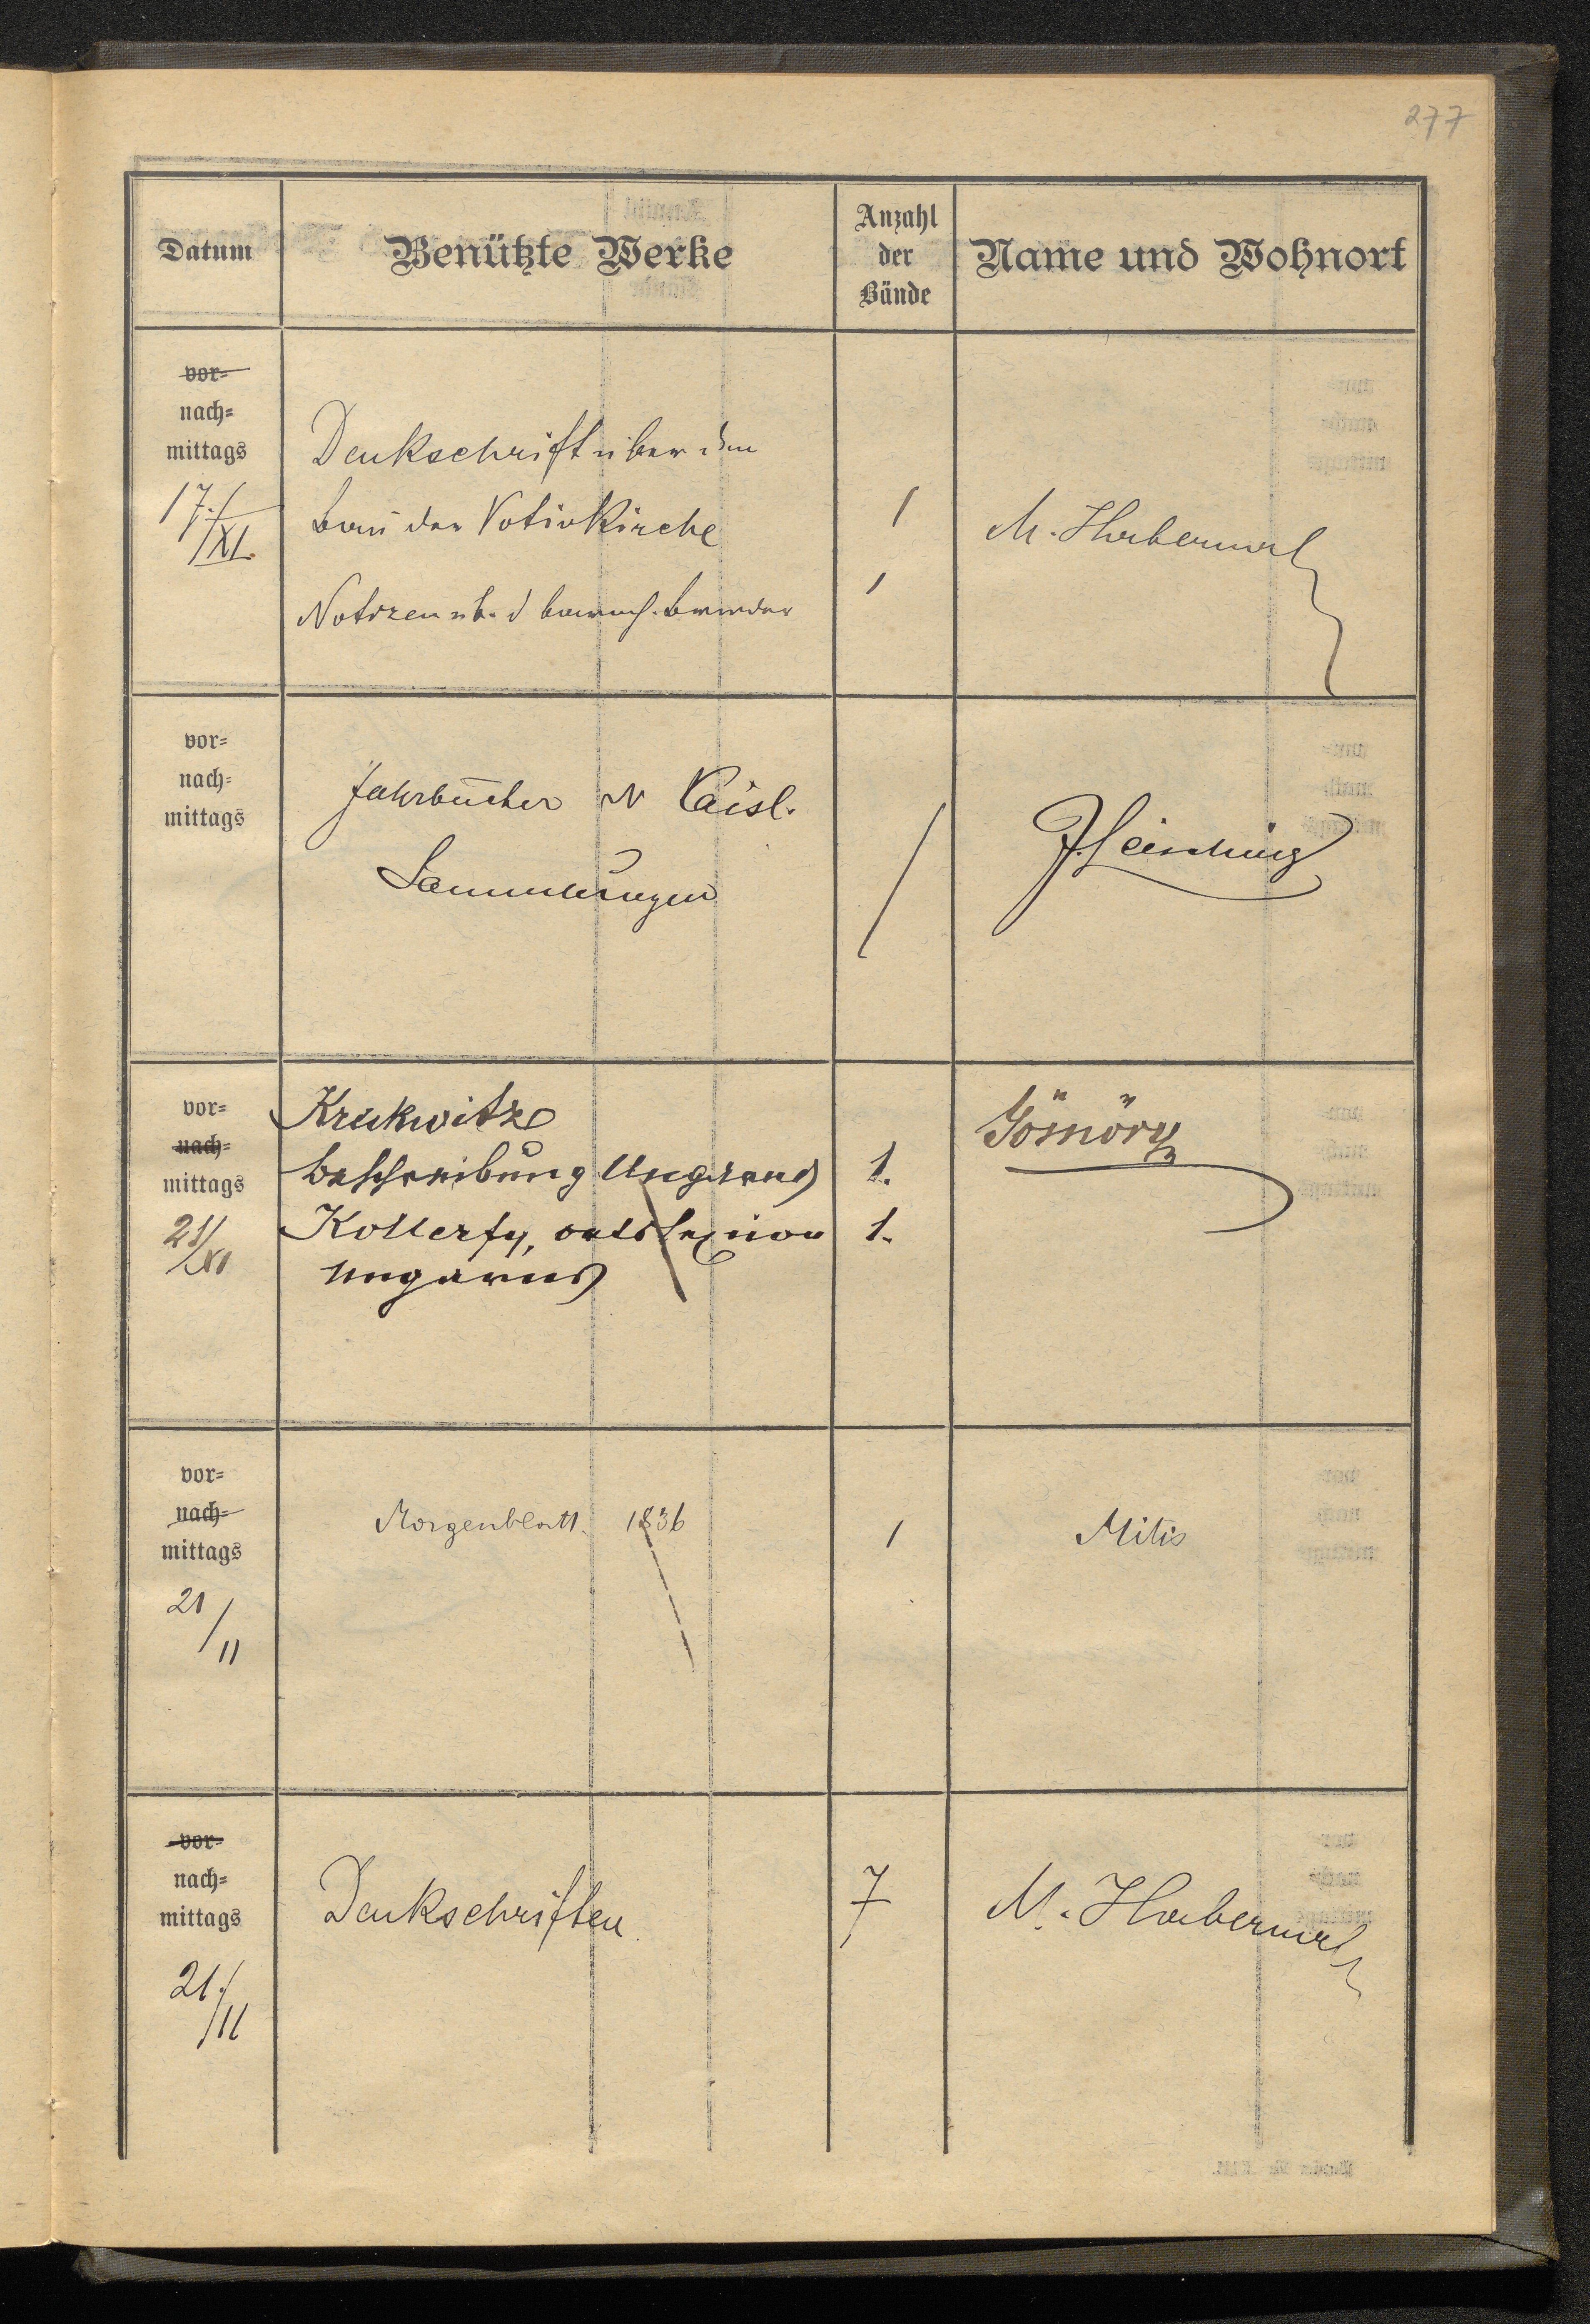 277
Datum
Benützte Werke
Anzahl
der
Bände
Name und Wohnort
vor-
nach-
mittags
17./XI.
Denkschrift über den
Bau der Votivkirche
Notizen üb. d
1
1
M. Haberml
vor-
nach-
mittags
Jahrbücher Kaisl.
Sammlungen
/
J. Leisching
vor-
nach-
mittags
21/XI
Krickwitz
Beschreibung Ungerns
Kollerfy, ortslexicon
Ungarns
1.
1.
Gömöry
vor-
nach-
mittags
21/11
Morgenblatt. 1836
1
Mitis
vor-
nach-
mittags
21./11
Denkschriften
7
M. Haberml